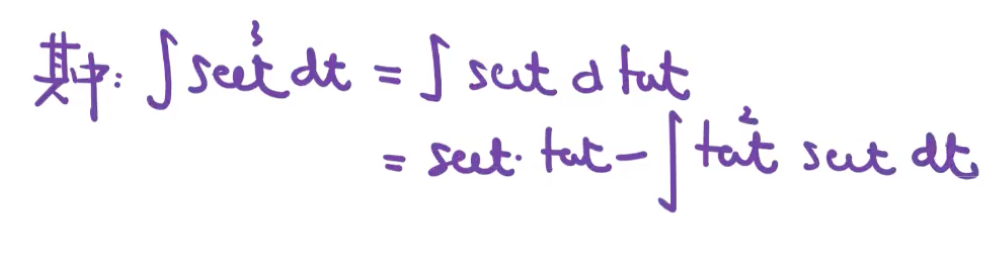 其中: ∫ sec³t dt = ∫ sect d tant
= sect · tant − ∫ tan²t sect dt